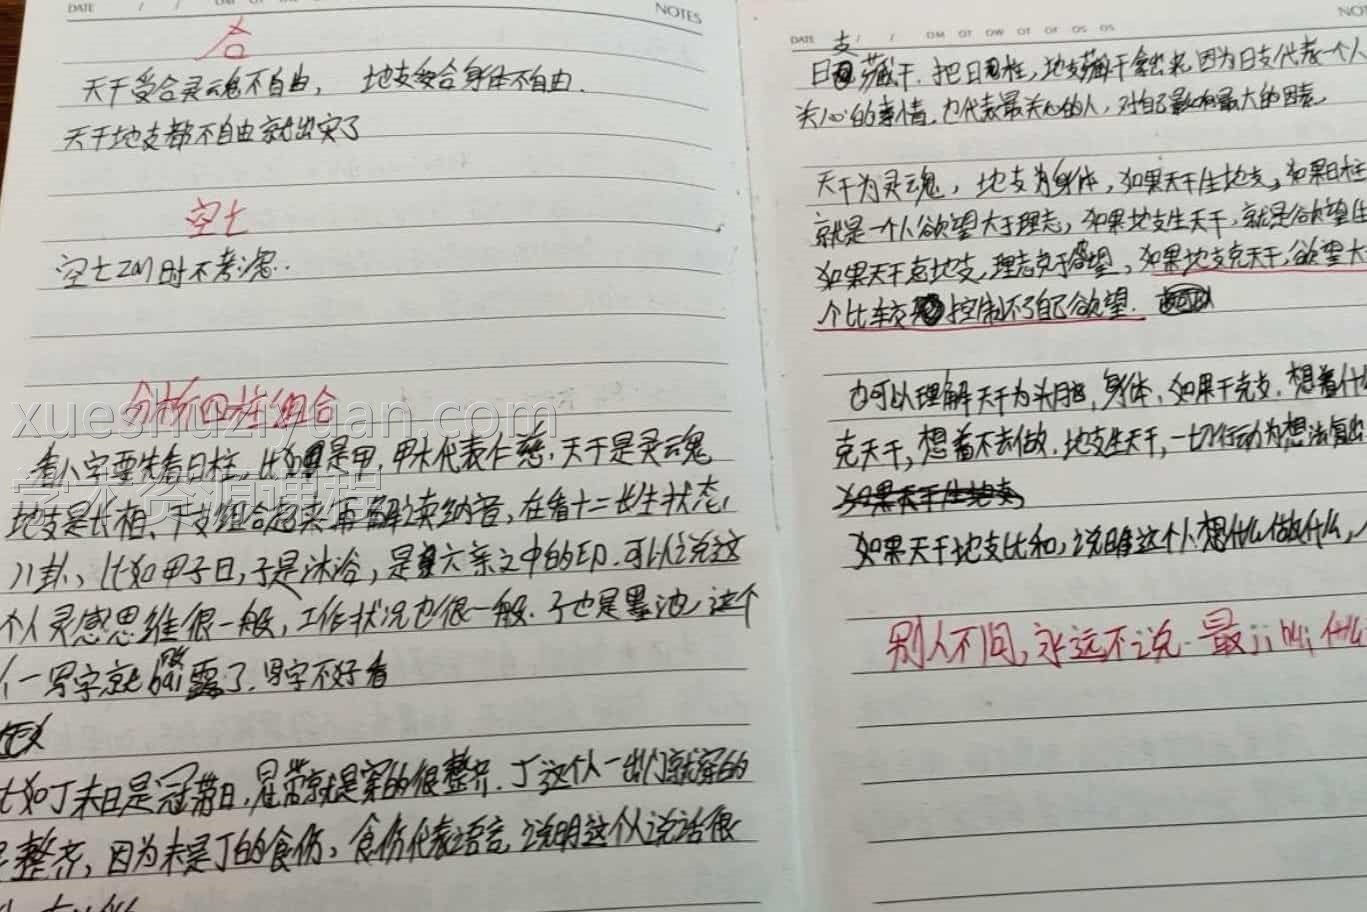 DATE / / NOTES
合
天干受合灵魂不自由，地支受合身体不自由.
天干地支都不自由就出灾了
空亡
空亡zm时不考虑..
分析四柱组合
看八字要先看日柱，比如是甲，甲木代表仁慈，天干是灵魂
地支是长相、干支组合起来再解读纳音，在看十二长生状态，
八卦、比如甲子日，子是沐浴，是六亲之中的印.可以说这
个人灵感思维很一般，工作状况也很一般.子也是墨池，这个
一写字就bai露了.写字不好看
比如丁未日是冠带日，冠带就是穿的很整齐.丁这个人一出门就穿的
整齐，因为未是丁的食伤，食伤代表语言，说明这个人说话很
DATE / / NOT
支
日藏干.把日柱，地支藏干拿出来，因为日支代表一个人
关心的事情，也代表最关心的人，对自己影响最大的因素，
天干为灵魂，地支为身体，如果天干生地支，如果日柱
就是一个人欲望大于理志，如果地支生天干，就是欲望
如果天干克地支，理志克于欲望，如果地支克天干，欲望大
个比较控制不了自己欲望.
也可以理解天干为头脑，身体，如果干克支，想着什
克天干，想着不去做.地支生天干，一切行动为想法
如果天干生地支
如果天干地支比和，说明这个人想什么做什么，
别人不问，永远不说.最ji hui什么
xueshuziyuan.com
学术资源课程